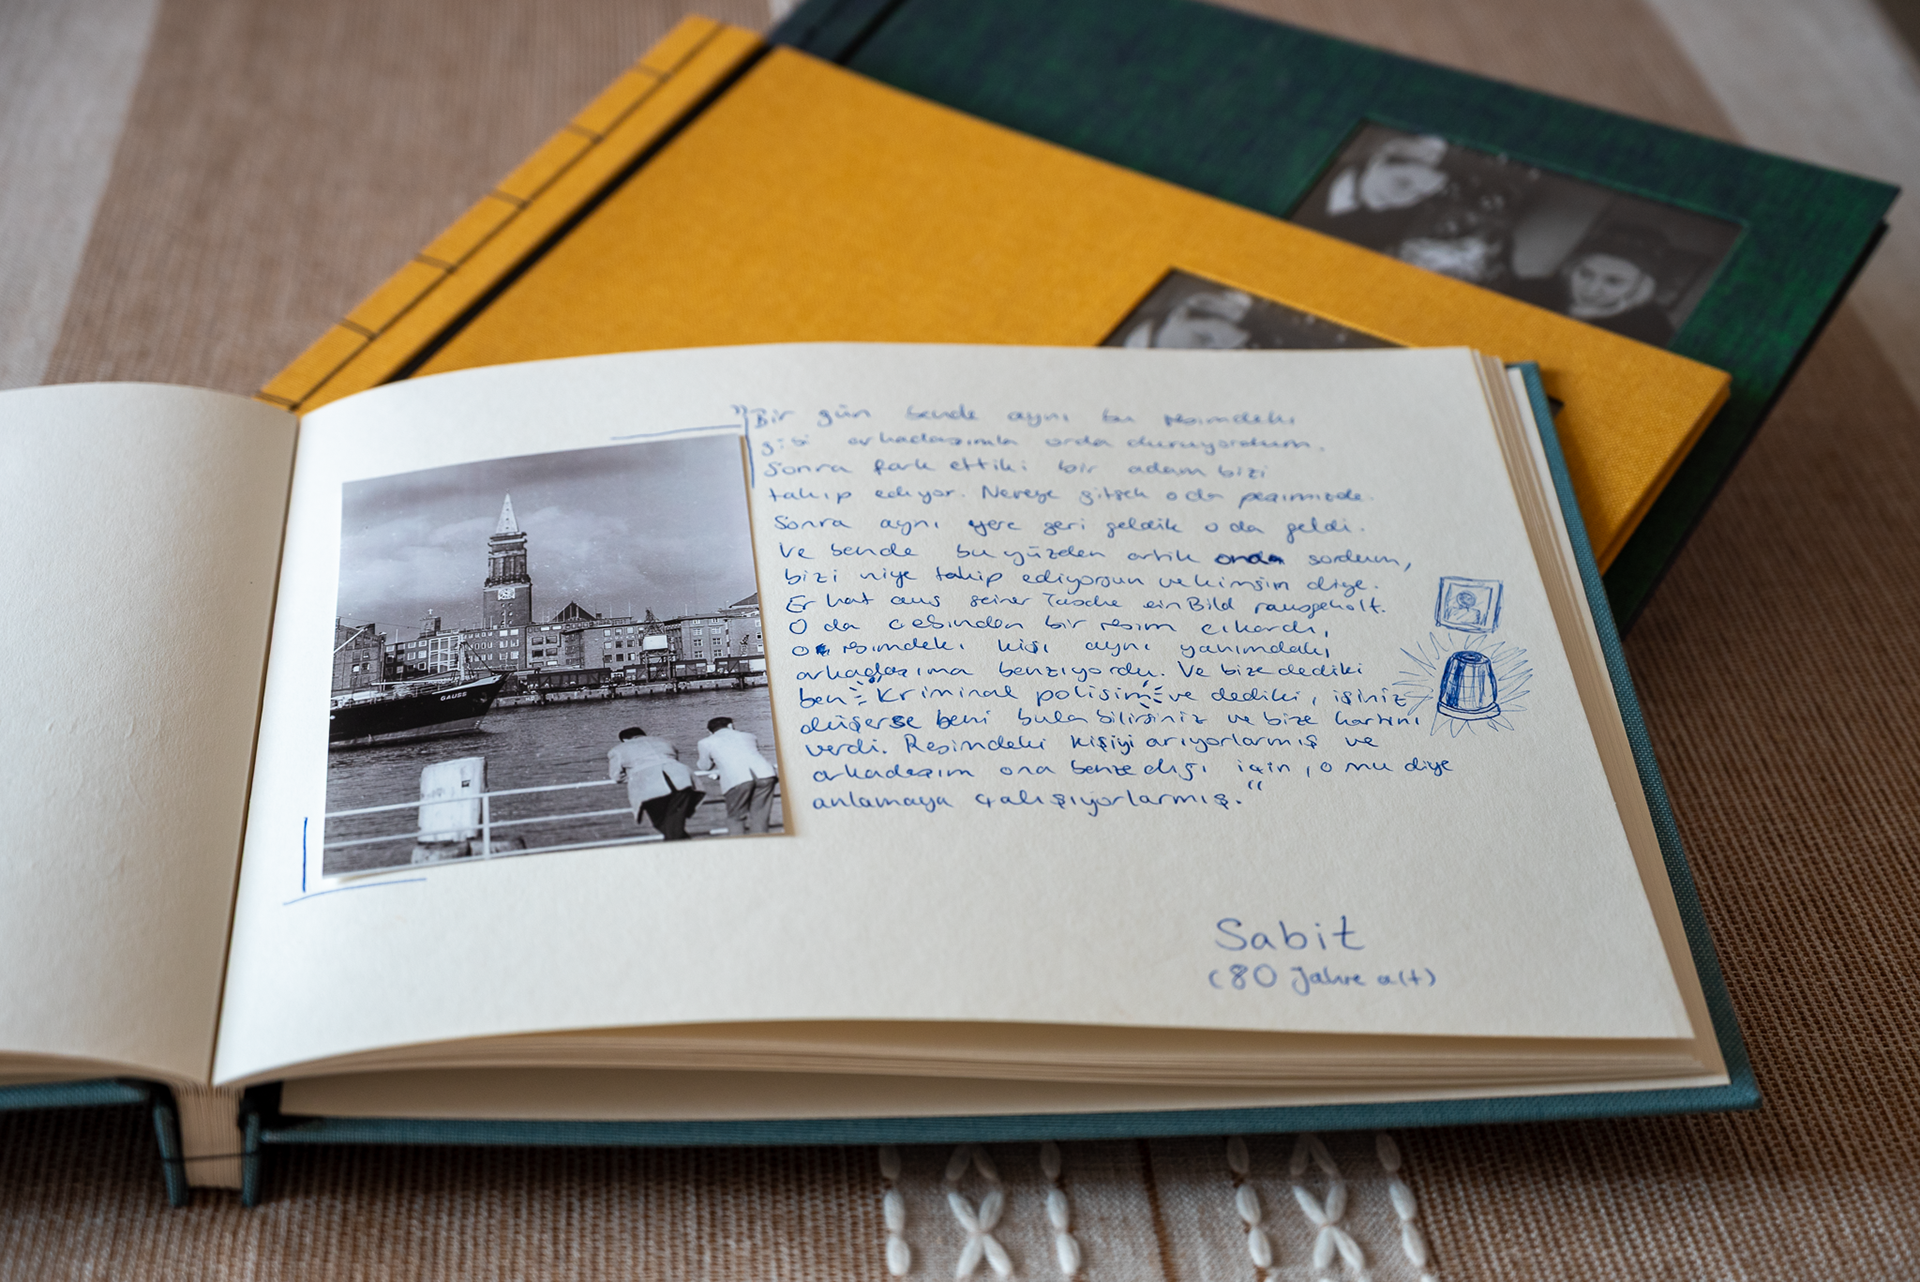 GAUSS
"Bir gün bende aynı bu resimdeki
gibi arkadaşımla orda duruyordum.
Sonra fark ettiki bir adam bizi
takip ediyor. Nereye gitsek o da peşimizde.
Sonra aynı yere geri geldik o da geldi.
Ve bende bu yüzden artık onda sordum,
bizi niye takip ediyorsun ve kimsin diye.
Er hat aus seiner Tasche ein Bild rausgeholt.
O da cebinden bir resim cıkardı,
o resimdeki kişi aynı yanımdaki
arkadaşıma benziyordu. Ve bize dediki
ben Kriminal polisim ve dediki, işiniz
düşerse beni bula bilirsiniz ve bize kartını
verdi. Resimdeki kişiyi arıyorlarmış ve
arkadaşım ona benzediği için, o mu diye
anlamaya çalışıyorlarmış."
Sabit
(80 Jahre alt)